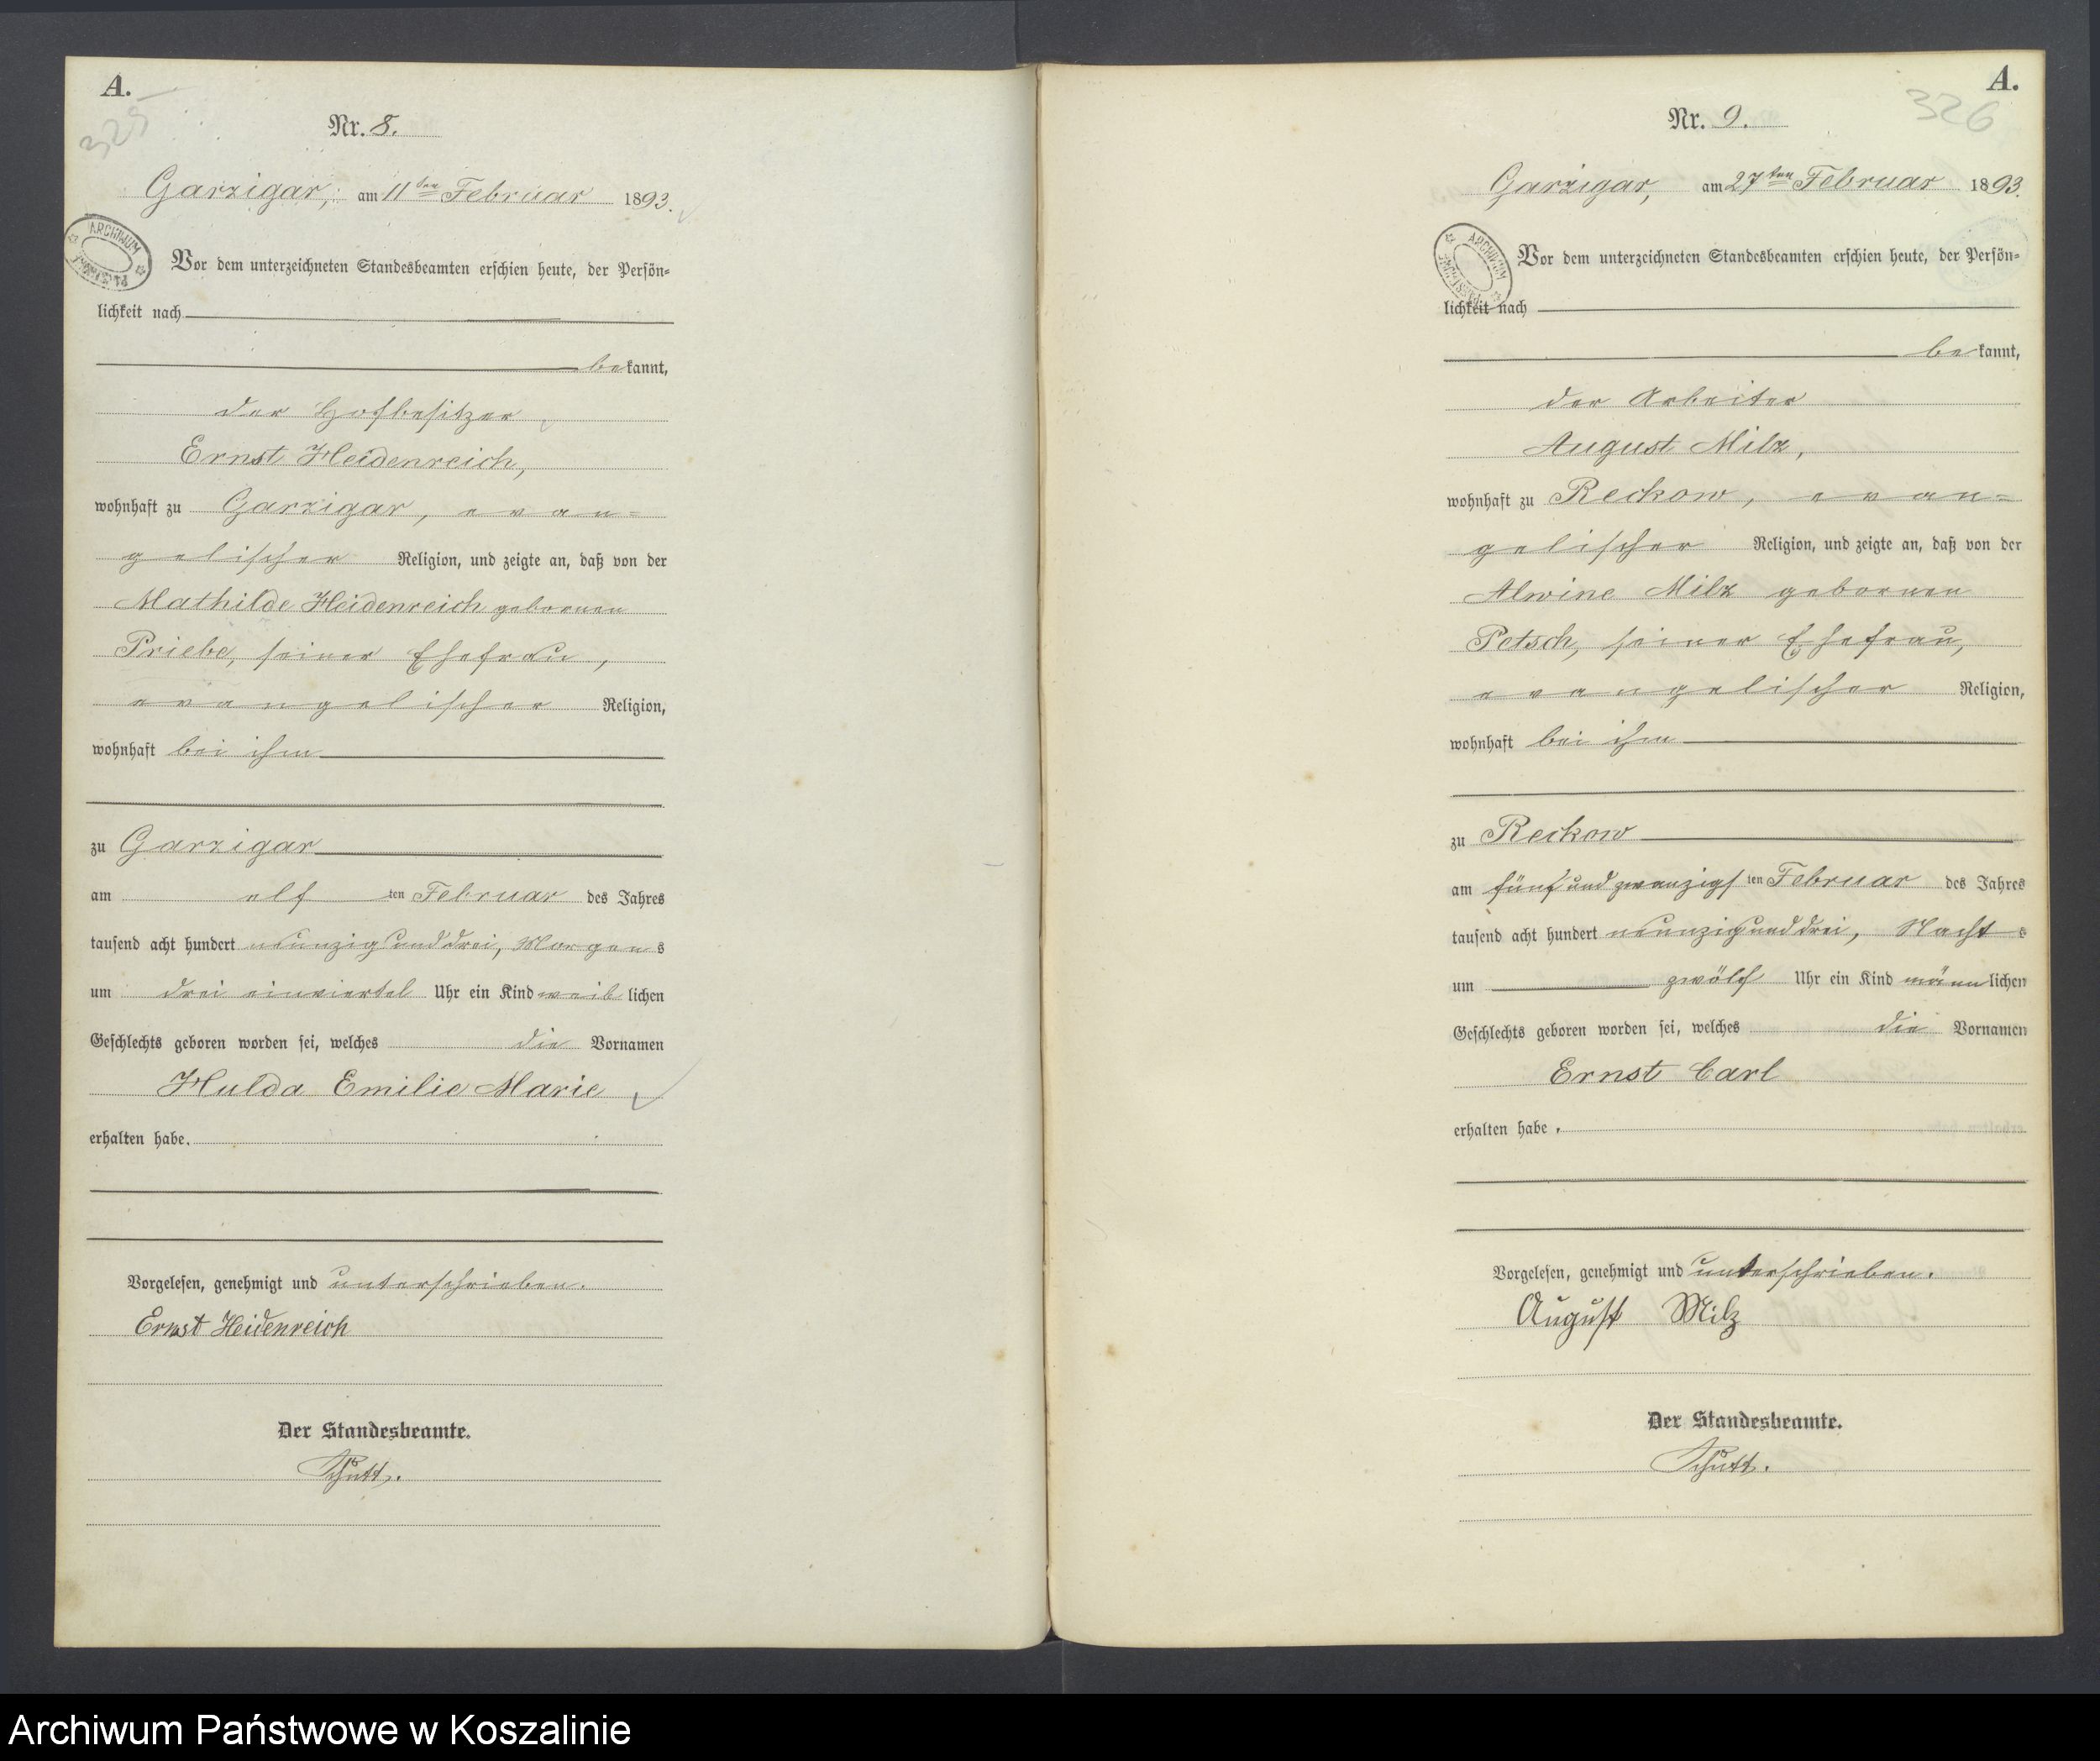 A.
325
Nr. 8.
Garzigar, am 11ten Februar 1893.
ARCHIWUM
Vor dem unterzeichneten Standesbeamten erschien heute, der Persön=
lichkeit nach
bekannt,
der Hofbesitzer
Ernst Heidenreich,
wohnhaft zu Garzigar, evan=
gelischer Religion, und zeigte an, daß von der
Mathilde Heidenreich gebornen
Priebe, seiner Ehefrau,
evangelischer Religion,
wohnhaft bei ihm
zu Garzigar
am elf ten Februar des Jahres
tausend acht hundert neunzig und drei, Morgens
um drei einviertel Uhr ein Kind weiblichen
Geschlechts geboren worden sei, welches die Vornamen
Hulda Emilie Marie
erhalten habe.
Vorgelesen, genehmigt und unterschrieben.
Ernst Heidenreich
Der Standesbeamte.
Schutt.
A.
326
Nr. 9.
Garzigar, am 27ten Februar 1893.
ARCHIWUM
Vor dem unterzeichneten Standesbeamten erschien heute, der Persön=
lichkeit nach
bekannt,
der Arbeiter
August Milz,
wohnhaft zu Reckow, evan=
gelischer Religion, und zeigte an, daß von der
Alwine Milz gebornen
Petsch, seiner Ehefrau,
evangelischer Religion,
wohnhaft bei ihm
zu Reckow
am fünf und zwanzigsten Februar des Jahres
tausend acht hundert neunzig und drei, Nachts
um zwölf Uhr ein Kind männlichen
Geschlechts geboren worden sei, welches die Vornamen
Ernst Carl
erhalten habe.
Vorgelesen, genehmigt und unterschrieben.
August Milz
Der Standesbeamte.
Schutt.
Archiwum Państwowe w Koszalinie